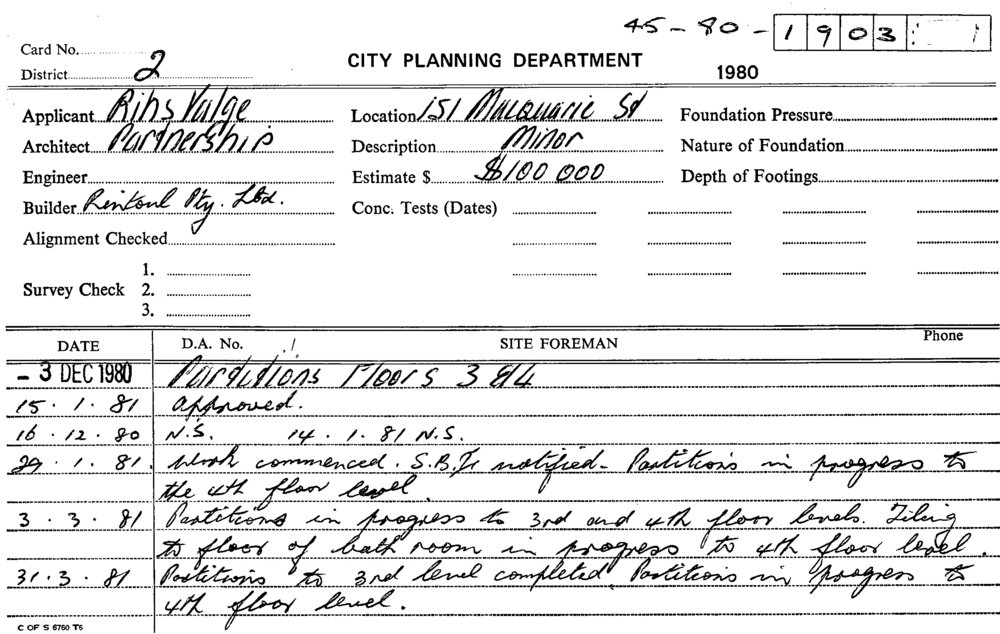 45 - 80 - 1903
Card No.
District 2
CITY PLANNING DEPARTMENT
1980
Applicant Rihs Valge
Architect Partnership
Engineer
Builder Rintoul Pty. Ltd.
Alignment Checked
Survey Check 1.
2.
3.
Location 151 Macquarie St
Description Minor
Estimate $ $100 000
Conc. Tests (Dates)
Foundation Pressure
Nature of Foundation
Depth of Footings
DATE D.A. No. SITE FOREMAN Phone
- 3 DEC 1980 Partitions Floors 3 & 4
15 . 1 . 81 approved.
16 . 12 . 80 N.S. 14 . 1 . 81 N.S.
29 . 1 . 81. Work commenced. notified. Partitions in progress to
the 4th floor level.
3 . 3 . 81 Partitions in progress to 3rd and 4th floor levels. Tiling
to floor of bath room in progress to 4th floor level.
31 . 3 . 81 Partitions to 3rd level completed. Partitions in progress to
4th floor level.
C OF S 6760 T6